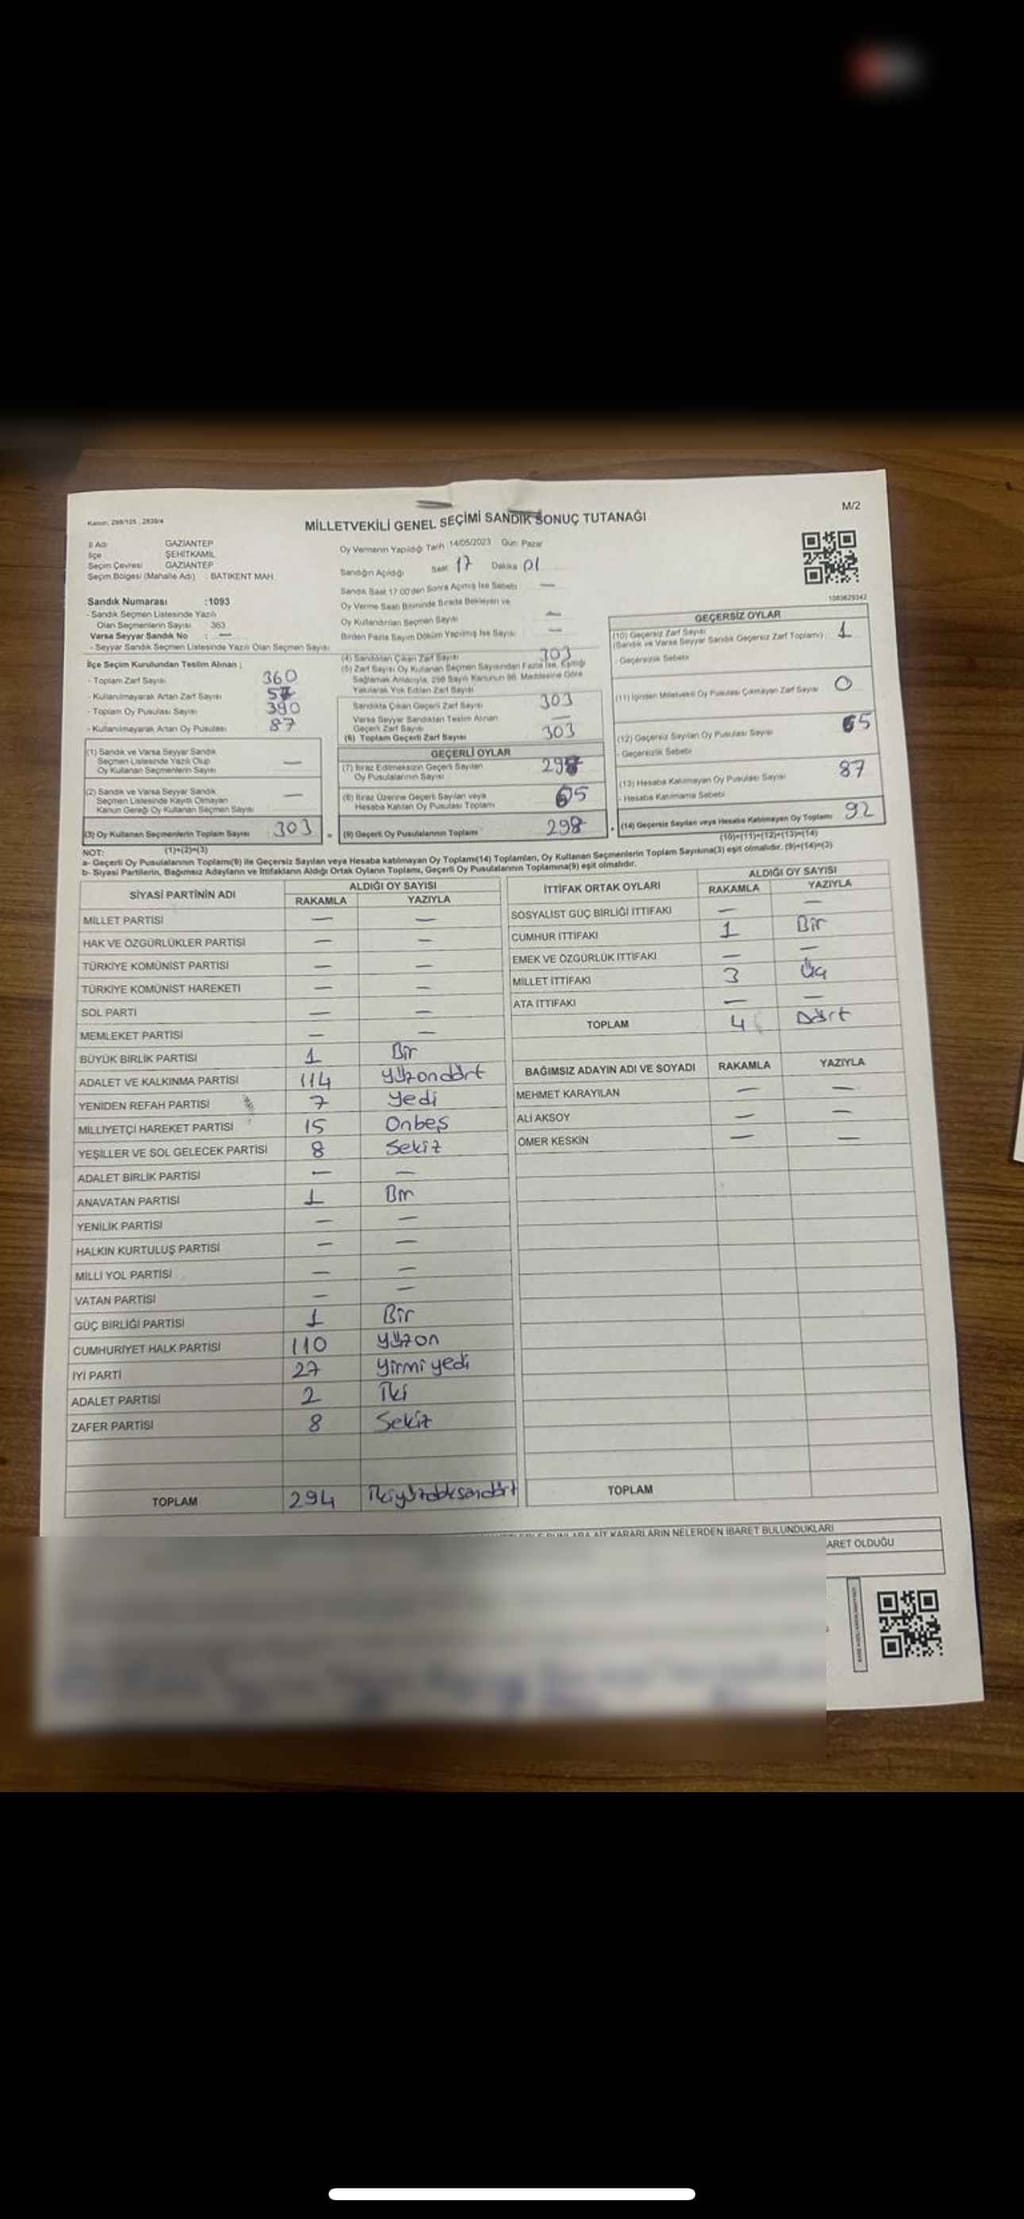 Kanun: 298/105 , 2839/4
MİLLETVEKİLİ GENEL SEÇİMİ SANDIK SONUÇ TUTANAĞI
M/2
İl Adı GAZİANTEP
İlçe ŞEHİTKAMİL
Seçim Çevresi GAZİANTEP
Seçim Bölgesi (Mahalle Adı) : BATIKENT MAH.
Oy Vermenin Yapıldığı Tarih 14/05/2023 Gün: Pazar
Sandığın Açıldığı Saat 17 Dakika 01
Sandık Saat 17:00'den Sonra Açılmış İse Sebebi —
Oy Verme Saati Bitiminde Sırada Bekleyen ve
Oy Kullandırılan Seçmen Sayısı —
Birden Fazla Sayım Döküm Yapılmış İse Sayısı —
1083629342
Sandık Numarası :1093
- Sandık Seçmen Listesinde Yazılı
Olan Seçmenlerin Sayısı 363
Varsa Seyyar Sandık No : —
- Seyyar Sandık Seçmen Listesinde Yazılı Olan Seçmen Sayısı
İlçe Seçim Kurulundan Teslim Alınan ;
- Toplam Zarf Sayısı 360
- Kullanılmayarak Artan Zarf Sayısı
- Toplam Oy Pusulası Sayısı 390
- Kullanılmayarak Artan Oy Pusulası 87
(1) Sandık ve Varsa Seyyar Sandık
Seçmen Listesinde Yazılı Olup
Oy Kullanan Seçmenlerin Sayısı —
(2) Sandık ve Varsa Seyyar Sandık
Seçmen Listesinde Kayıtlı Olmayan
Kanun Gereği Oy Kullanan Seçmen Sayısı —
(3) Oy Kullanan Seçmenlerin Toplam Sayısı 303
(1)+(2)=(3)
(4) Sandıktan Çıkan Zarf Sayısı 303
(5) Zarf Sayısı Oy Kullanan Seçmen Sayısından Fazla İse, Eşitliği
Sağlamak Amacıyla, 298 Sayılı Kanunun 98. Maddesine Göre
Yakılarak Yok Edilen Zarf Sayısı
Sandıkta Çıkan Geçerli Zarf Sayısı 303
Varsa Seyyar Sandıktan Teslim Alınan
Geçerli Zarf Sayısı —
(6) Toplam Geçerli Zarf Sayısı 303
GEÇERLİ OYLAR
(7) İtiraz Edilmeksizin Geçerli Sayılan
Oy Pusulalarının Sayısı
(8) İtiraz Üzerine Geçerli Sayılan veya
Hesaba Katılan Oy Pusulası Toplamı
(9) Geçerli Oy Pusulalarının Toplamı 298
GEÇERSİZ OYLAR
(10) Geçersiz Zarf Sayısı
(Sandık ve Varsa Seyyar Sandık Geçersiz Zarf Toplamı) : 1
- Geçersizlik Sebebi
(11) İçinden Milletvekili Oy Pusulası Çıkmayan Zarf Sayısı 0
(12) Geçersiz Sayılan Oy Pusulası Sayısı
- Geçersizlik Sebebi
(13) Hesaba Katılmayan Oy Pusulası Sayısı 87
- Hesaba Katılmama Sebebi
(14) Geçersiz Sayılan veya Hesaba Katılmayan Oy Toplamı 92
(10)+(11)+(12)+(13)=(14)
NOT:
a- Geçerli Oy Pusulalarının Toplamı(9) ile Geçersiz Sayılan veya Hesaba katılmayan Oy Toplamı(14) Toplamları, Oy Kullanan Seçmenlerin Toplam Sayısına(3) eşit olmalıdır. (9)+(14)=(3)
b- Siyasi Partilerin, Bağımsız Adayların ve İttifakların Aldığı Ortak Oyların Toplamı, Geçerli Oy Pusulalarının Toplamına(9) eşit olmalıdır.
SİYASİ PARTİNİN ADI ALDIĞI OY SAYISI
RAKAMLA YAZIYLA
MİLLET PARTİSİ — —
HAK VE ÖZGÜRLÜKLER PARTİSİ — —
TÜRKİYE KOMÜNİST PARTİSİ — —
TÜRKİYE KOMÜNİST HAREKETİ — —
SOL PARTİ — —
MEMLEKET PARTİSİ — —
BÜYÜK BİRLİK PARTİSİ 1 Bir
ADALET VE KALKINMA PARTİSİ 114 Yüzondört
YENİDEN REFAH PARTİSİ 7 Yedi
MİLLİYETÇİ HAREKET PARTİSİ 15 Onbeş
YEŞİLLER VE SOL GELECEK PARTİSİ 8 Sekiz
ADALET BİRLİK PARTİSİ — —
ANAVATAN PARTİSİ 1 Bir
YENİLİK PARTİSİ — —
HALKIN KURTULUŞ PARTİSİ — —
MİLLİ YOL PARTİSİ — —
VATAN PARTİSİ — —
GÜÇ BİRLİĞİ PARTİSİ 1 Bir
CUMHURİYET HALK PARTİSİ 110 Yüzon
İYİ PARTİ 27 Yirmi yedi
ADALET PARTİSİ 2 İki
ZAFER PARTİSİ 8 Sekiz
TOPLAM 294 İkiyüzdoksandört
İTTİFAK ORTAK OYLARI ALDIĞI OY SAYISI
RAKAMLA YAZIYLA
SOSYALİST GÜÇ BİRLİĞİ İTTİFAKI — —
CUMHUR İTTİFAKI 1 Bir
EMEK VE ÖZGÜRLÜK İTTİFAKI — —
MİLLET İTTİFAKI 3 Üç
ATA İTTİFAKI — —
TOPLAM 4 Dört
BAĞIMSIZ ADAYIN ADI VE SOYADI RAKAMLA YAZIYLA
MEHMET KARAYILAN — —
ALİ AKSOY — —
ÖMER KESKİN — —
TOPLAM
BUNLARA AİT KARARLARIN NELERDEN İBARET BULUNDUKLARI
ARET OLDUĞU